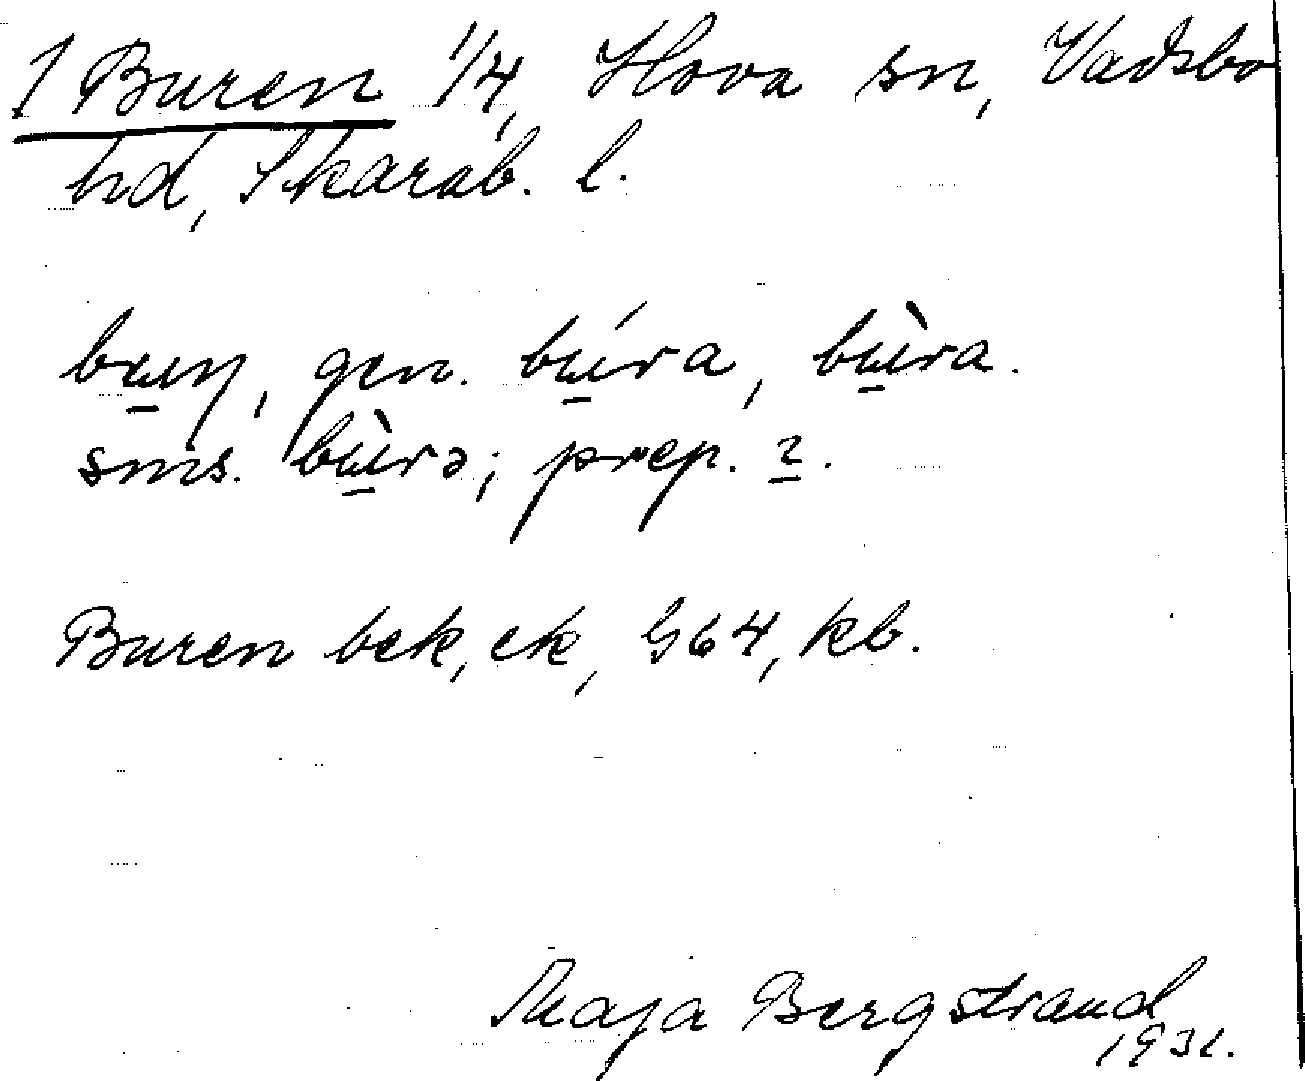 1 Buren 1/4, Hova sn, Vadsbo
hd, Skarab. l.
bu̲ɳ, gen. bú̲ra, bù̲ra.
sms. bù̲rə; prep. 2̲.
Buren bek, ek, G64, kb.
Maja Bergstrand
1931.